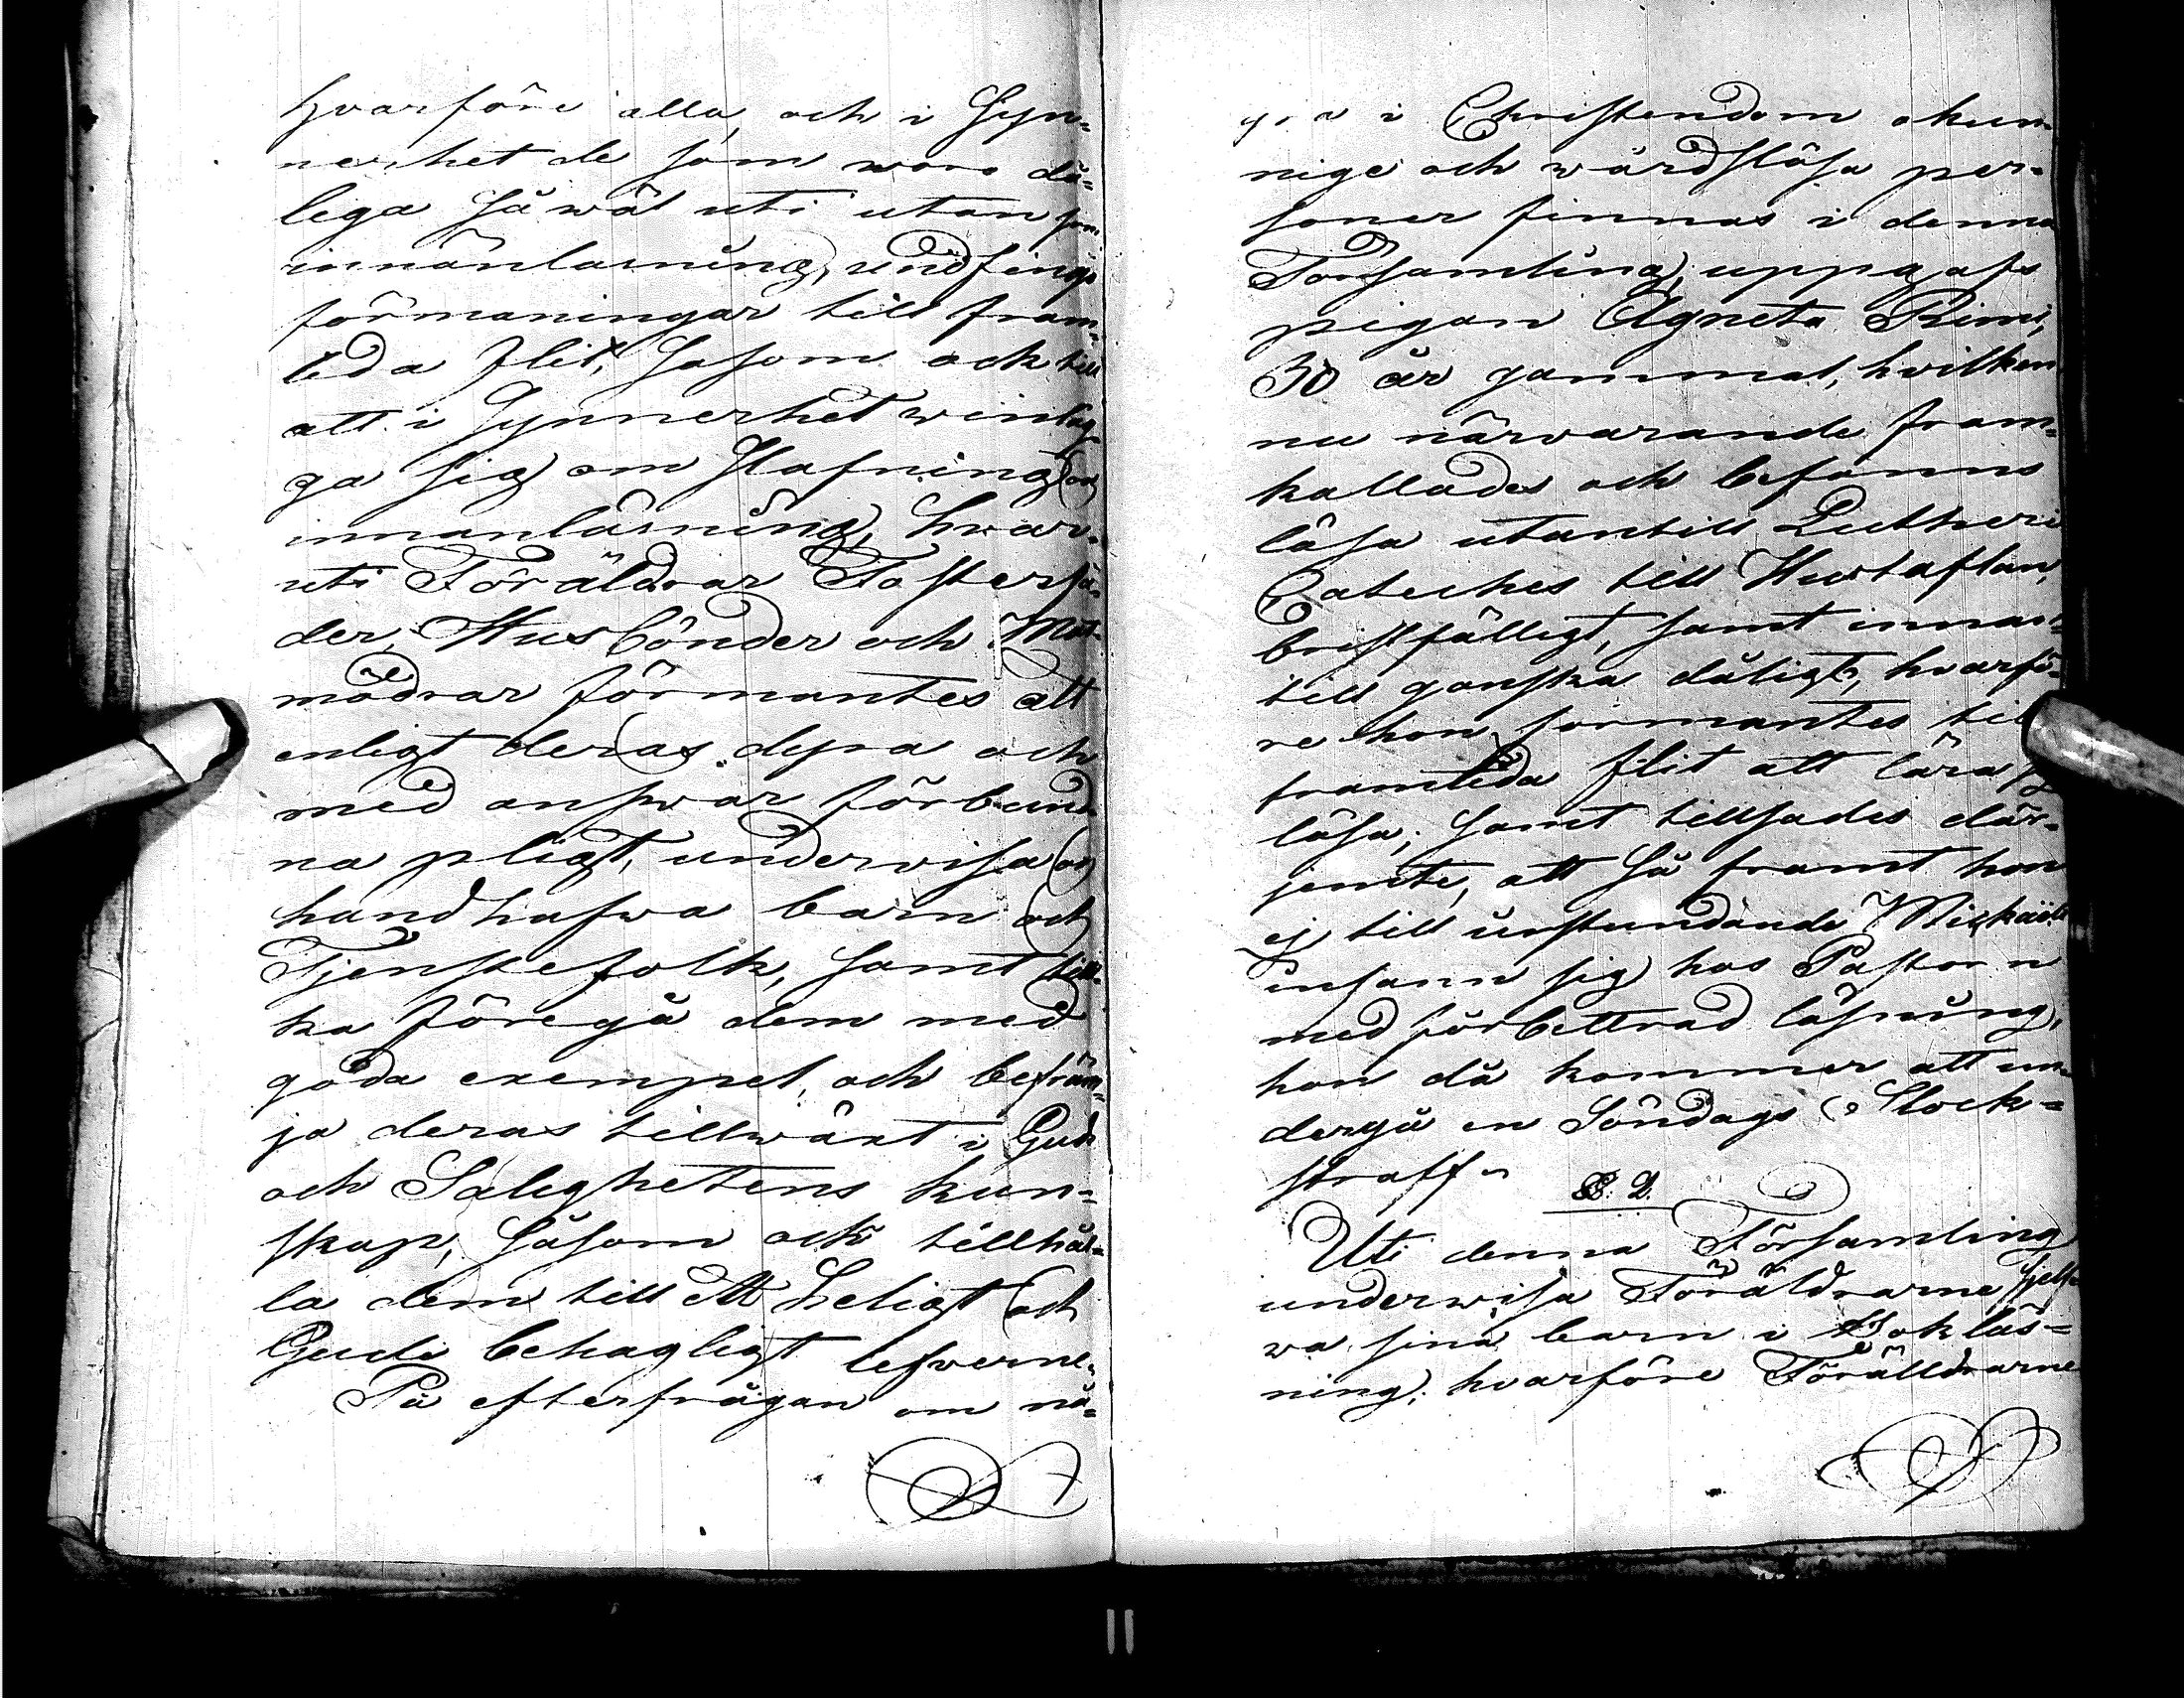 hvarföre alla, och i Syn-
nerhet de som woro då-
lega så wäl uti utan som
innanläsning, undfingo
förmaningar till fram-
teda flit, såsom ock till
att i Synnerhet winläg-
ga sig om Stafning och
innanläsning, hvar-
uti Föräldrar Fosterfä-
der, Husbönder och Mat-
mödrar förmantes att
enligt deras dyra och
med answar förbund-
na pligt, underwisa och
handhafwa barn och
Tjenstefolk, samt till-
ka föregå dem med
goda exempel, och befräm-
ja deras tillwäxt i Guds
och Salighetens kun-
skap, såsom ock tillhål-
la dem till ett heligt och
Gudi behagligt lefverne.
På efterfrågan om nå-
gra i Christendom okun-
nige och wårdslösa per-
soner finnas i denna
Församling, uppgafs
pigan Agneta Rimi,
30 år gammal, hvilken
nu närvarande fram-
kallades och befanns
läsa utantill Lutheri
Cateches till Hustaflan,
bristfälligt, samt innan-
till ganska dåligt, hvarfö-
re hon formantes till
framteda flit att lära sig
läsa; samt tillsades där-
jemte, att så framt hon
ej till instundande Michaëli
infann sig hos Pastorn
med förbettrad läsning,
hon då kommer att un-
dergå en Söndags Stock-
straff.
§. 2.
Uti denna Församling
underwisa Föräldrarne sjelf-
wa sina barn i Bokläs-
ning; hvarföre Förälldrarne